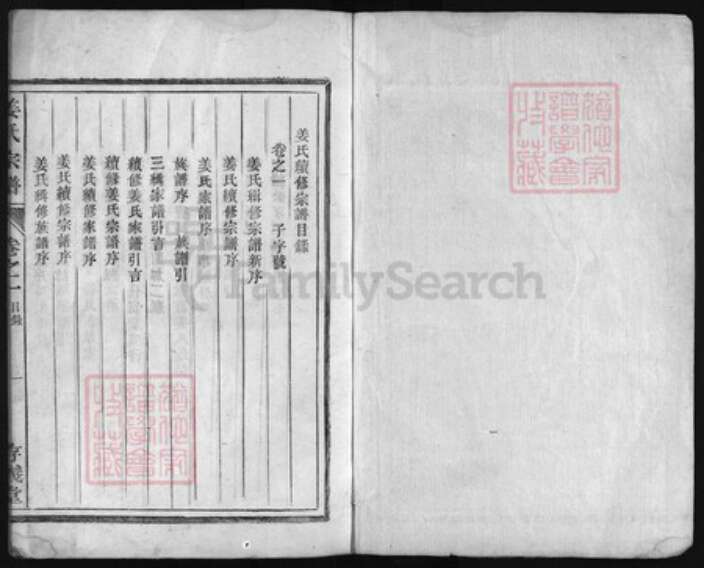 姜氏續修宗譜目錄
卷之一 子字號
姜氏緝修宗譜新序
姜氏續修宗譜序
姜氏家譜序
族譜序 族譜引
三橋家譜引言
續修姜氏家譜引言
續修姜氏宗譜序
姜氏續修家譜序
姜氏續修宗譜序
姜氏緝修族譜序
姜氏宗譜 卷之一 目錄 一
FamilySearch